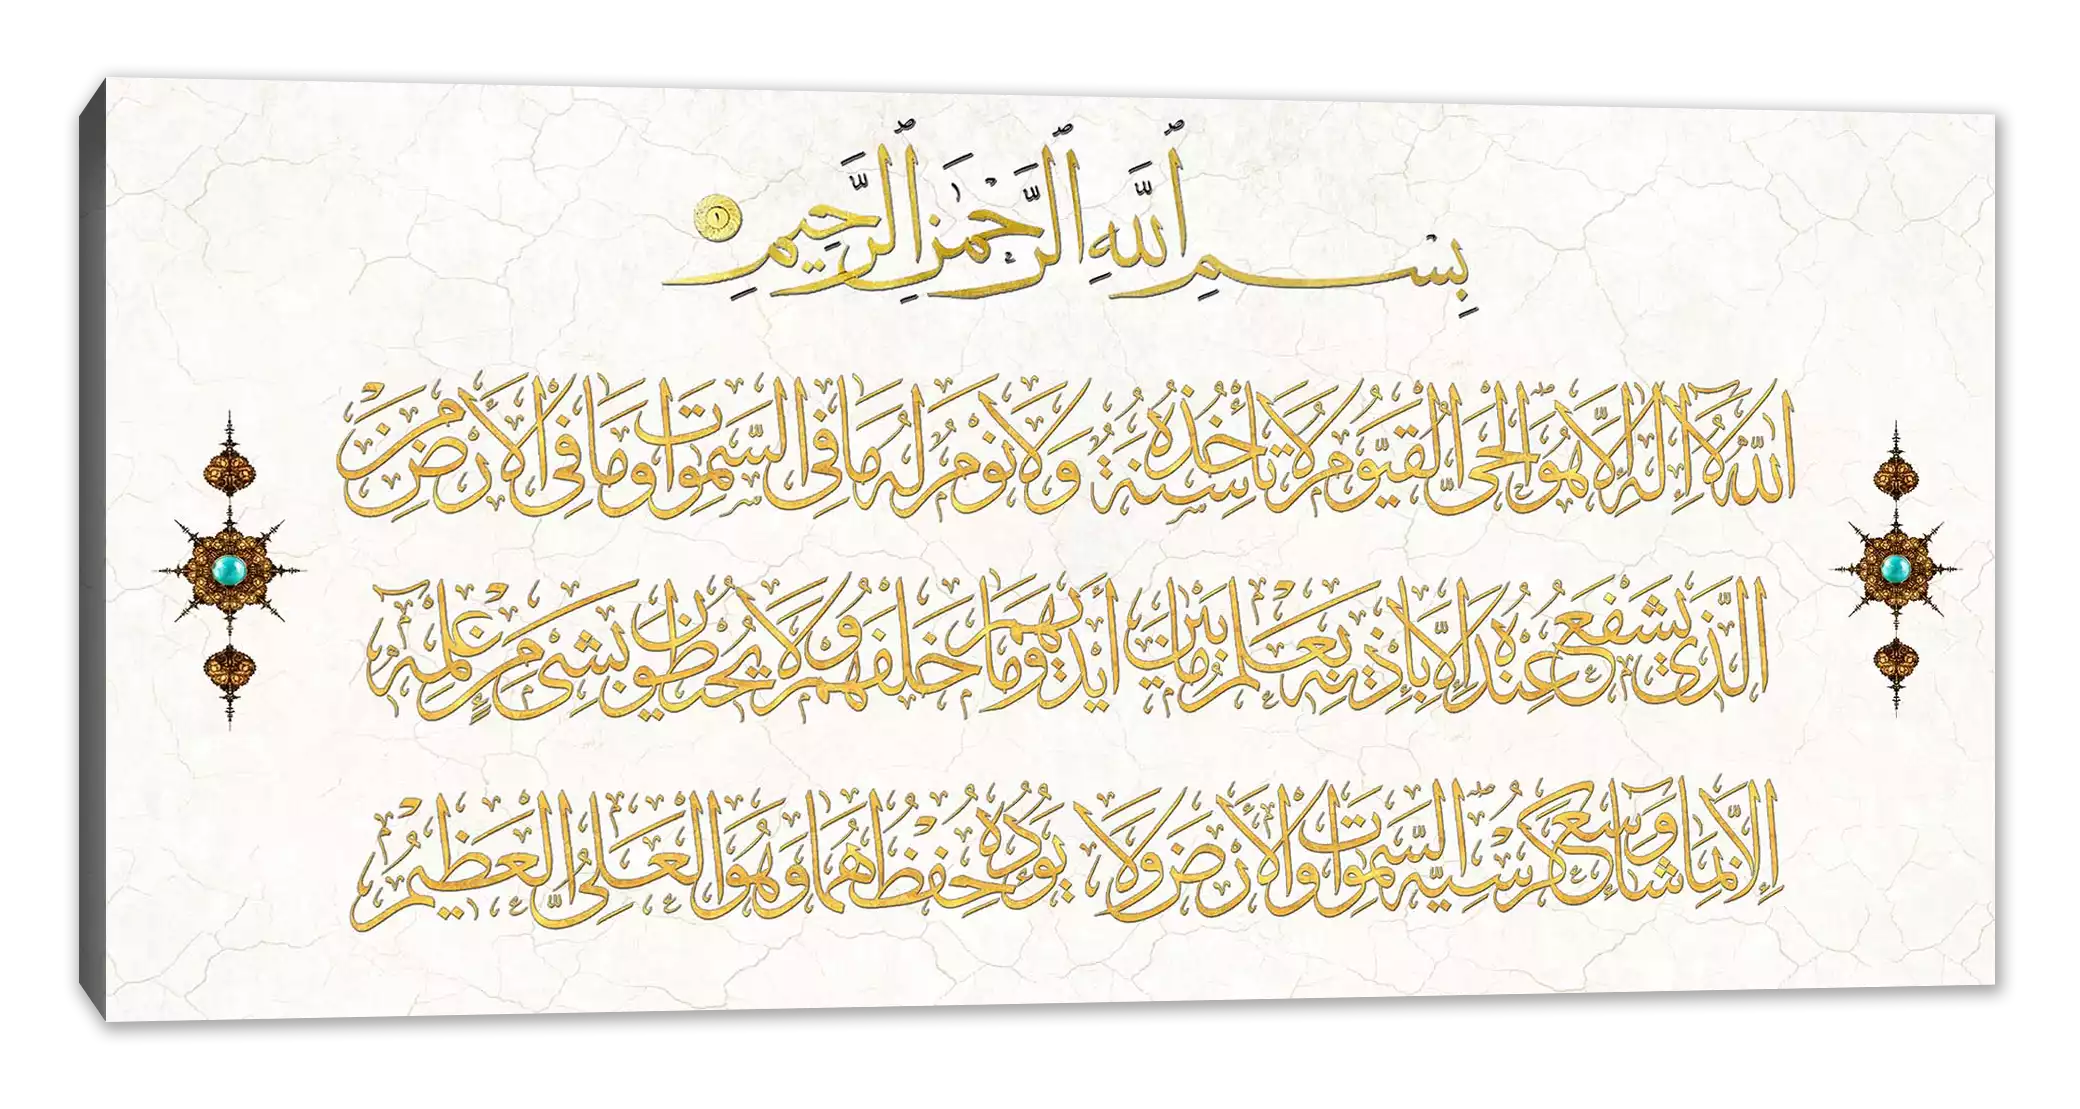 بِسْمِ ٱللَّهِ ٱلرَّحْمَٰنِ ٱلرَّحِيمِ ١
اللهُ لَا إِلَهَ إِلَّا هُوَ الْحَيُّ الْقَيُّومُ لَا تَأْخُذُهُ سِنَةٌ وَلَا نَوْمٌ لَهُ مَا فِي السَّمَوَاتِ وَمَا فِي الْأَرْضِ مَنْ
الَّذِي يَشْفَعُ عِنْدَهُ إِلَّا بِإِذْنِهِ يَعْلَمُ مَا بَيْنَ أَيْدِيهِمْ وَمَا خَلْفَهُمْ وَلَا يُحِيطُونَ بِشَيْءٍ مِنْ عِلْمِهِ
إِلَّا بِمَا شَاءَ وَسِعَ كُرْسِيُّهُ السَّمَوَاتِ وَالْأَرْضَ وَلَا يَؤُدُهُ حِفْظُهُمَا وَهُوَ الْعَلِيُّ الْعَظِيمُ